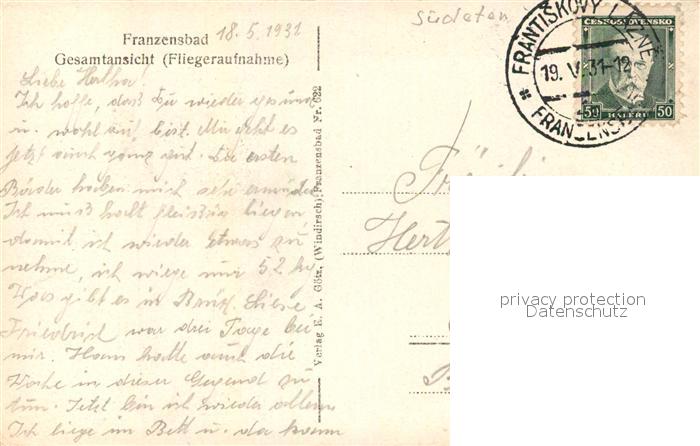 Franzensbad 18.5.1931
Gesamtansicht (Fliegeraufnahme)
Sudeten
FRANTIŠKOVY LÁZNĚ
19. V. 31-12
FRANZENSBAD
ČESKOSLOVENSKO
50 HALÉŘŮ 50
Liebe Hertha!
Ich hoffe, dass Du wieder gesund
u. wohl auf bist. Mir geht es
jetzt auch ganz gut. Die ersten
Bäder haben mich sehr ermüdet
Ich muß halt fleissig liegen
damit ich wieder etwas zu
nehme, ich wiege nur 52 kg
Was gibt es in Brüx. Liese
Friedrich war drei Tage bei
mir. Hans hatte auch die
Woche in dieser Gegend zu
tun. Jetzt bin ich wieder allein
Ich liege im Bett u. da kann
Verlag E. A. Götz, (Windirsch) Franzensbad Nr. 622
Hert
privacy protection
Datenschutz